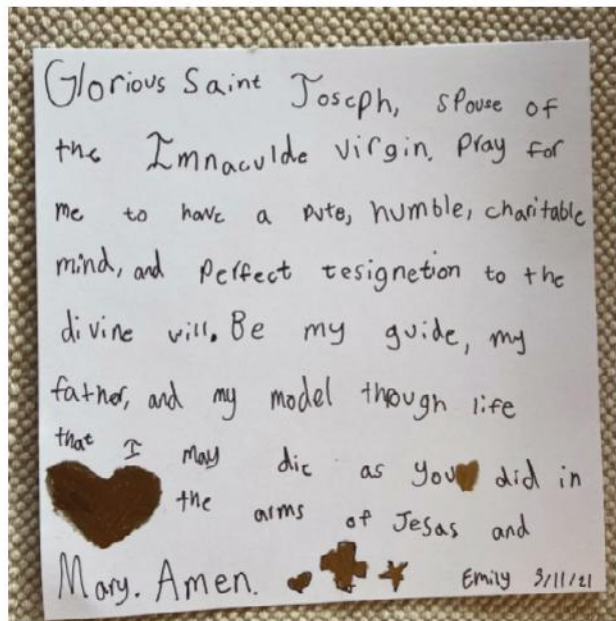 Glorious Saint Joseph, spouse of
the Imnaculde virgin. Pray for
me to have a pute, humble, charitable
mind, and perfect tesignetion to the
divine will. Be my guide, my
father, and my model though life
that I may die as you did in
the arms of Jesas and
Mary. Amen.
Emily 3/11/21